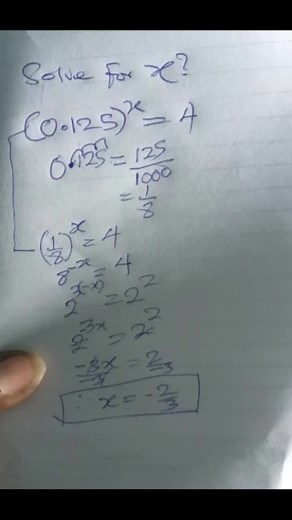 Solve for x?
(0.125)^x = 4
0.125 = 125/1000
= 1/8
(1/8)^x = 4
8^-x = 4
= 2^2
2^3x = 2^2
-3x/-3 = 2/-3
∴ x = -2/3